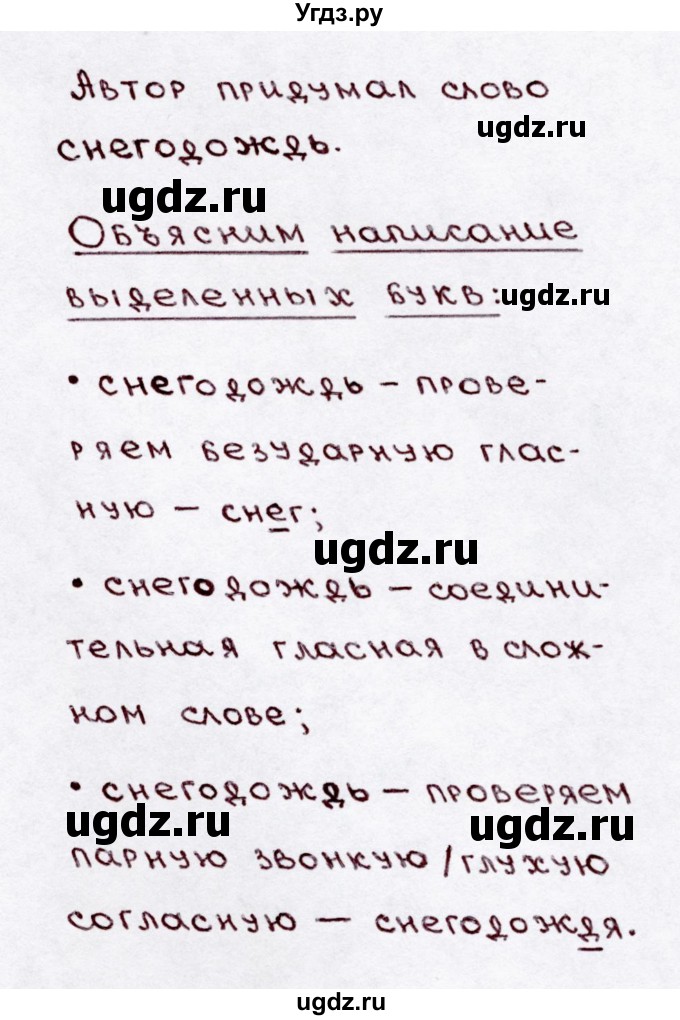 Угдз.ру
Автор придумал слово
ugdz.ru
снегодождь.
ugdz.ru
Объясним написание
выделенных букв:
ugdz.ru
• снегодождь – прове-
ряем безударную глас-
ную – снег;
ugdz.ru
• снегодождь – соедини-
тельная гласная в слож-
ном слове;
• снегодождь – проверяем
ugdz.ru
ugdz.ru
парную звонкую/глухую
согласную — снегодождя.
ugdz.ru